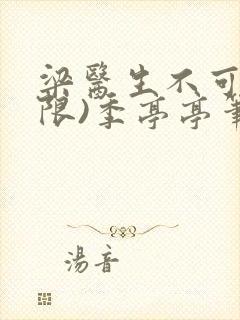 梁醫生不可
限)季亭亭筆
湯音